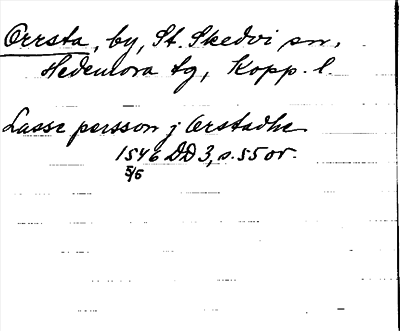 Orrsta, by, St. Skedvi sn,
Hedemora tg, Kopp. l.
Lasse persson j Orstadhe
1546 DD 3, s. 55 or.
5/6